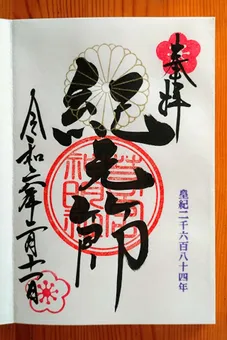 奉拝
皇紀二千六百八十四年
紀元節
令和六年二月十一日